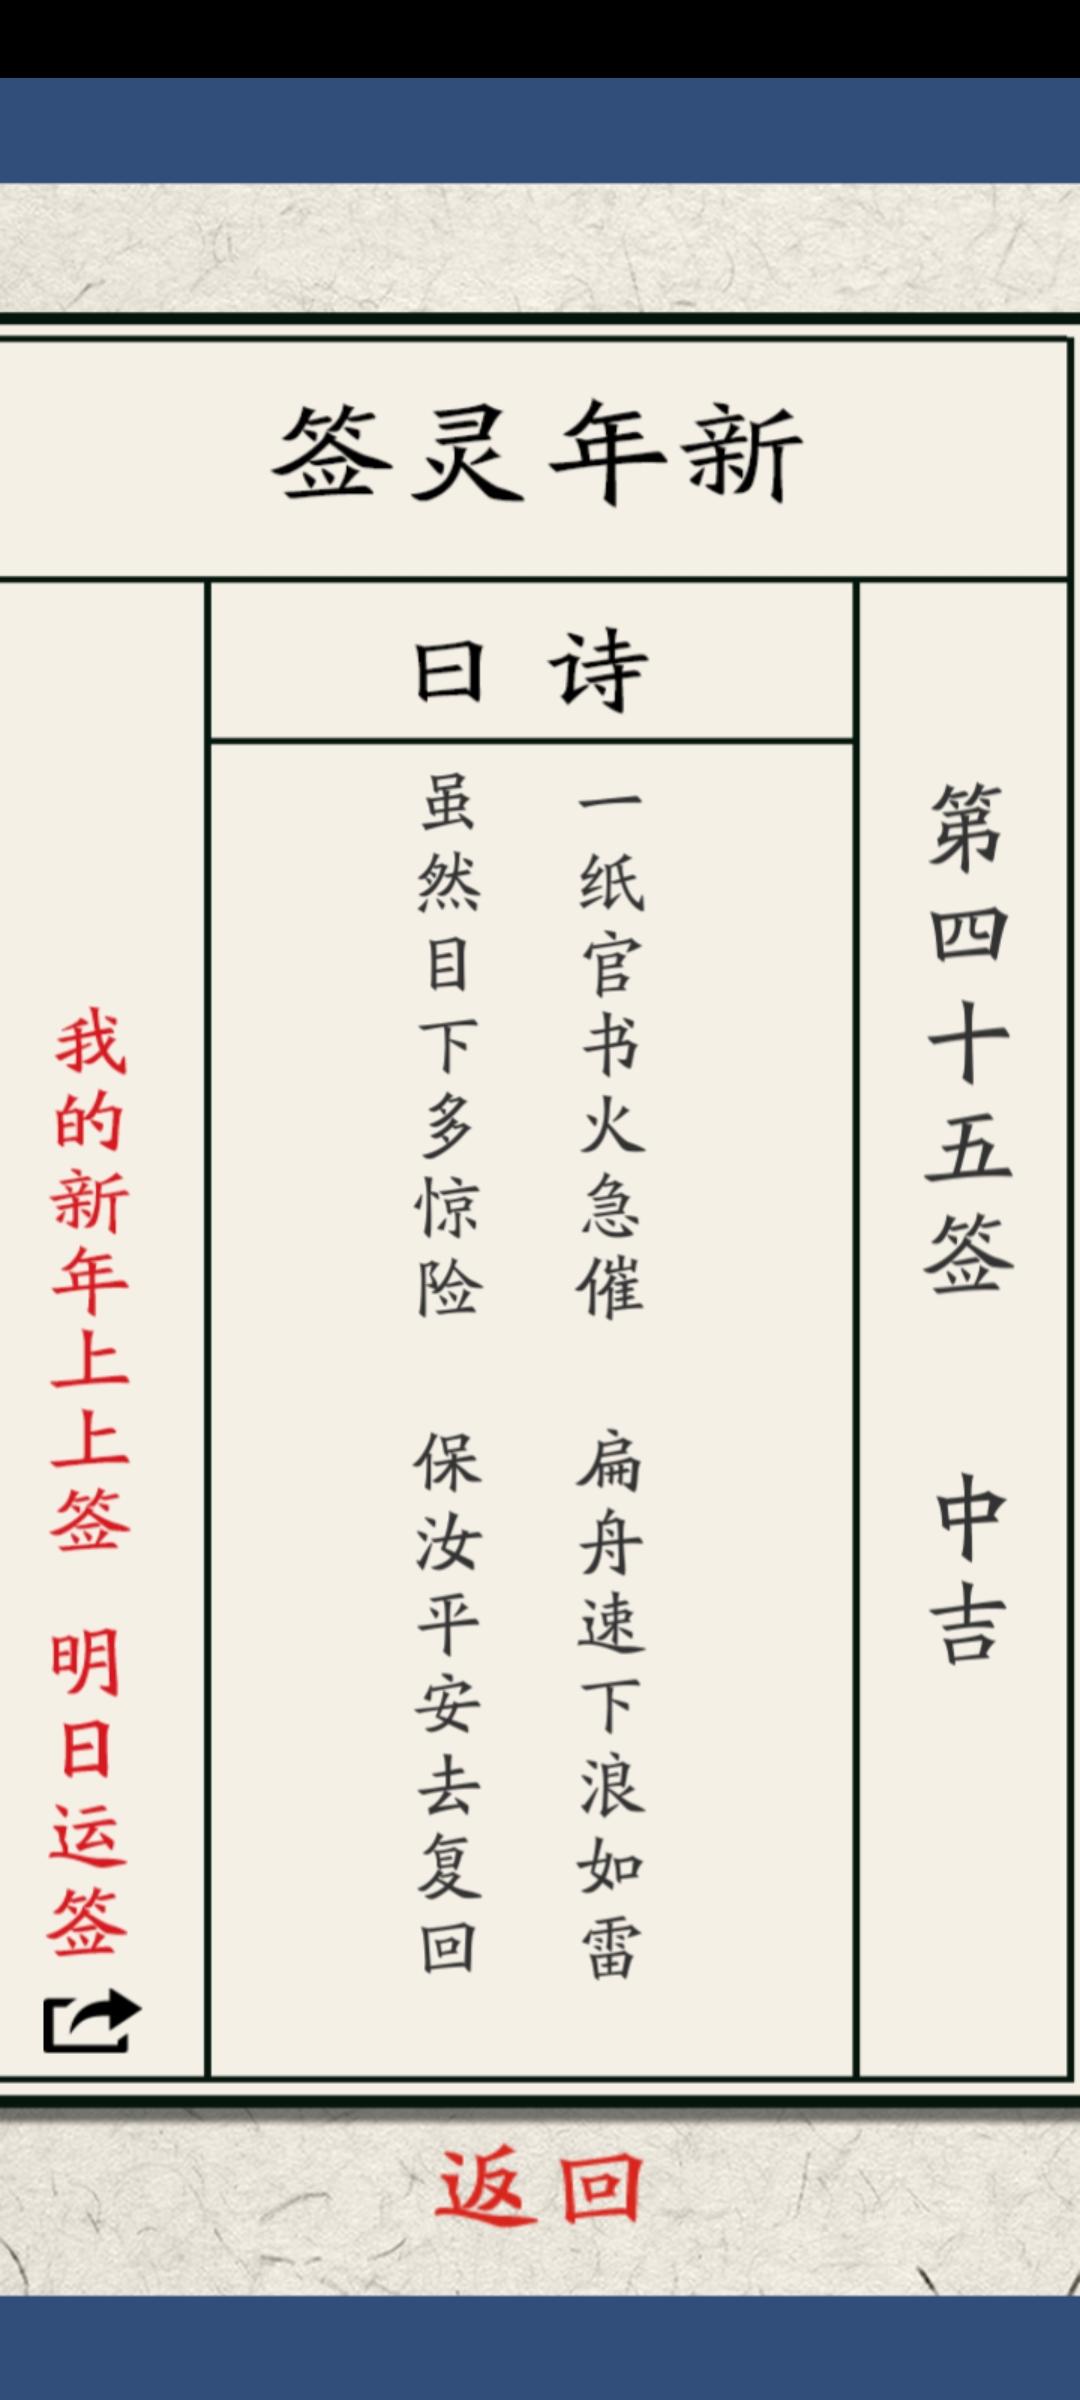 新年灵签
第四十五签 中吉
诗曰
一纸官书火急催 扁舟速下浪如雷
虽然目下多惊险 保汝平安去复回
我的新年上上签 明日运签
返回